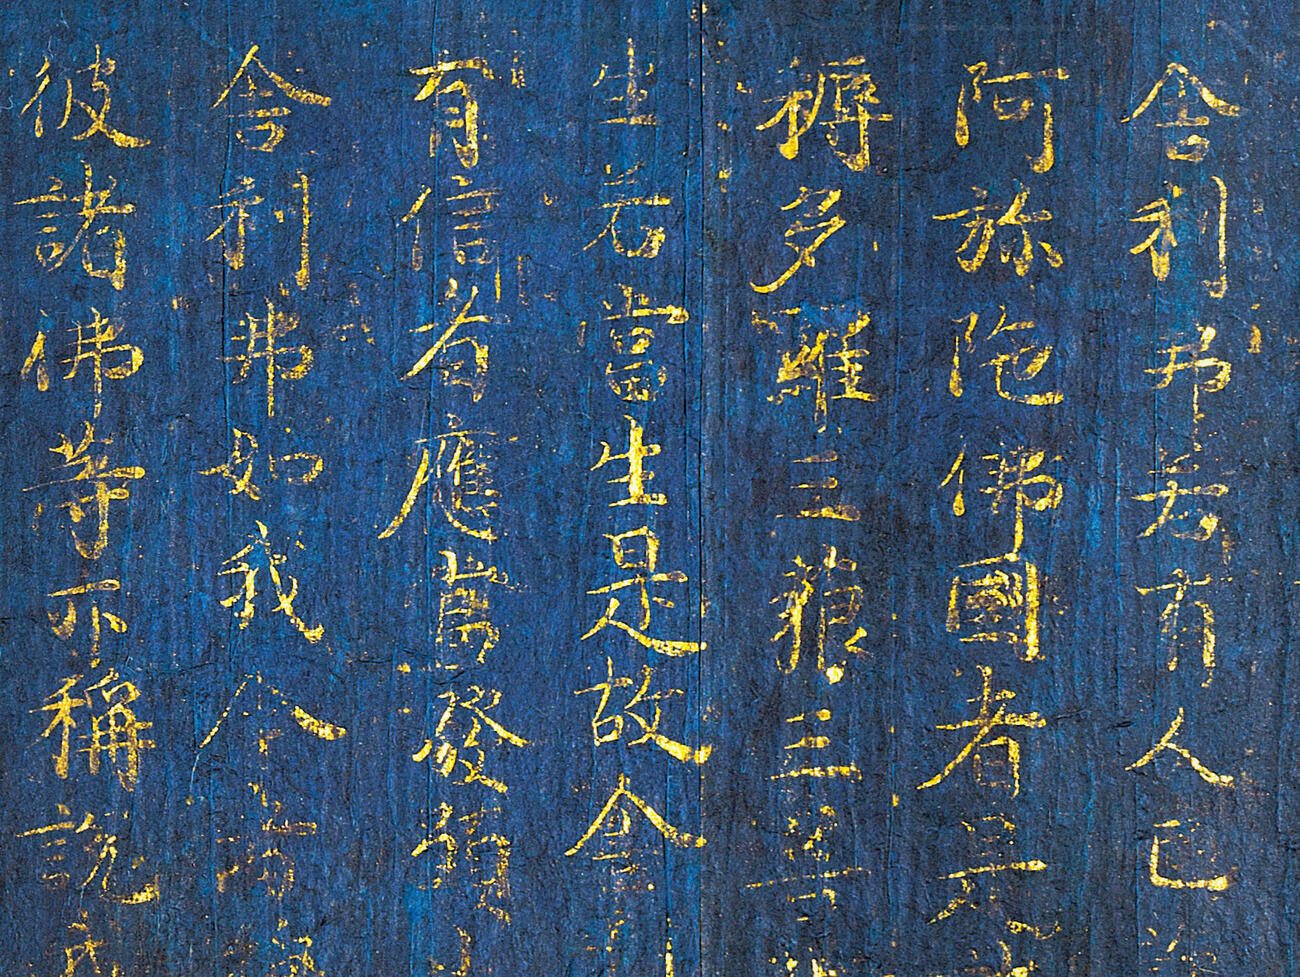 舍利弗若有人已
阿弥陀佛國者是
褥多羅三藐三菩
生若當生是故舍
有信者應當發
舍利弗如我今
彼諸佛等亦稱說